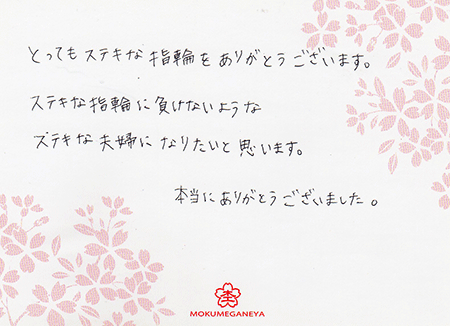 とってもステキな指輪をありがとうございます。
ステキな指輪に負けないような
ステキな夫婦になりたいと思います。
本当にありがとうございました。
MOKUMEGANEYA